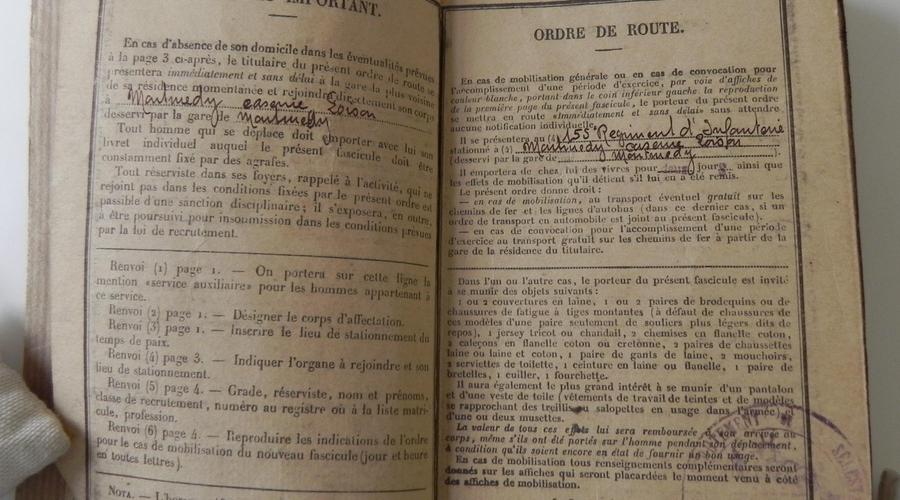 IMPORTANT.
En cas d'absence de son domicile dans les éventualités prévues
à la page 3 ci-après, le titulaire du présent ordre de route se
présentera immédiatement et sans délai à la gare la plus voisine
de sa résidence momentanée et rejoindra directement son corps
à Montmédy caserne Loison
desservi par la gare de Montmédy
Tout homme qui se déplace doit emporter avec lui son
livret individuel auquel le présent fascicule doit être
constamment fixé par des agrafes.
Tout réserviste dans ses foyers, rappelé à l'activité, qui ne
rejoint pas dans les conditions fixées par le présent ordre est
passible d'une sanction disciplinaire; il s'exposera, en outre,
à être poursuivi pour insoumission dans les conditions prévues
par la loi de recrutement.
Renvoi (1) page 1. — On portera sur cette ligne la
mention «service auxiliaire» pour les hommes appartenant à
ce service.
Renvoi (2) page 1. — Désigner le corps d'affectation.
Renvoi (3) page 1. — Inscrire le lieu de stationnement du
temps de paix.
Renvoi (4) page 3. — Indiquer l'organe à rejoindre et son
lieu de stationnement.
Renvoi (5) page 4. — Grade, réserviste, nom et prénoms,
classe de recrutement, numéro au registre où à la liste matri-
cule, profession.
Renvoi (6) page 4. — Reproduire les indications de l'ordre
pour le cas de mobilisation du nouveau fascicule (jour et heure
en toutes lettres).
NOTA. —
ORDRE DE ROUTE.
En cas de mobilisation générale ou en cas de convocation pour
l'accomplissement d'une période d'exercice, par voie d'affiches de
couleur blanche, portant dans le coin inférieur gauche la reproduction
de la première page du présent fascicule, le porteur du présent ordre
se mettra en route «immédiatement et sans délai» sans attendre
aucune notification individuelle.
Il se présentera au (4) 155 Régiment d'Infanterie
stationné à (5) Montmédy caserne Loison
(desservi par la gare de Montmédy ).
Il emportera de chez lui des vivres pour jours ainsi que
les effets de mobilisation qu'il détient s'il lui en a été remis.
Le présent ordre donne droit :
— en cas de mobilisation, au transport éventuel gratuit sur les
chemins de fer et les lignes d'autobus (dans ce dernier cas, si un
ordre de transport en automobile est joint au présent fascicule).
— en cas de convocation pour l'accomplissement d'une période
d'exercice au transport gratuit sur les chemins de fer à partir de la
gare de la résidence du titulaire.
Dans l'un ou l'autre cas, le porteur du présent fascicule est invité
à se munir des objets suivants :
1 ou 2 couvertures en laine, 1 ou 2 paires de brodequins ou de
chaussures de fatigue à tiges montantes (à défaut de chaussures de
ces modèles d'une paire seulement de souliers plus légers dits de
repos), 1 jersey tricot ou chandail, 2 chemises en flanelle coton,
2 caleçons en flanelle coton ou cretonne, 2 paires de chaussettes
laine ou laine et coton, 1 paire de gants de laine, 2 mouchoirs,
2 serviettes de toilette, 1 ceinture en laine ou flanelle, 1 paire de
bretelles, 1 cuiller, 1 fourchette.
Il aura également le plus grand intérêt à se munir d'un pantalon
et d'une veste de toile (vêtements de travail de teintes et de modèles
se rapprochant des treillis ou salopettes en usage dans l'armée) et
d'une ou deux musettes.
La valeur de tous ces effets lui sera remboursée à son arrivée au
corps, même s'ils ont été portés sur l'homme pendant son déplacement,
à condition qu'ils soient encore en état de fournir un bon usage.
En cas de mobilisation tous renseignements complémentaires seront
donnés sur les affiches qui seront placardées le moment venu à côté
des affiches de mobilisation.